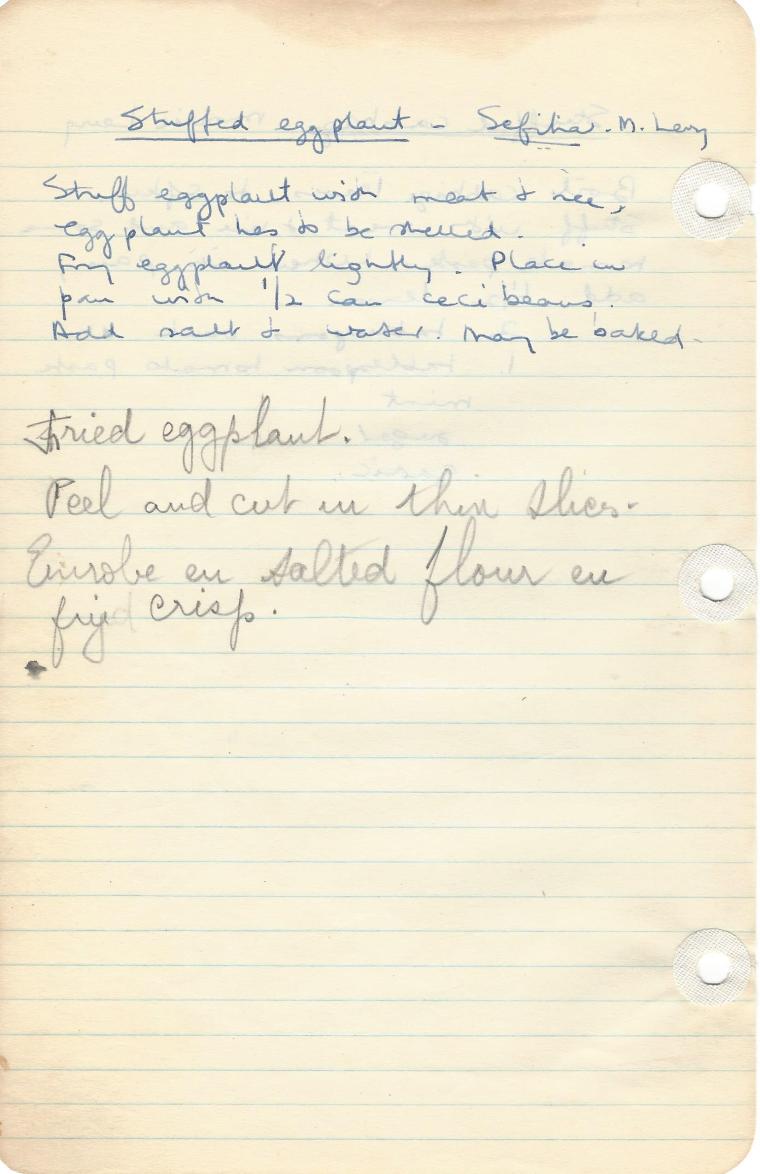 Stuffed eggplant - Sefiha. M. Levy
Stuff eggplant with meat & rice,
eggplant has to be shelled.
Fry eggplant lightly. Place in
pan with 1/2 can ceci beans.
Add salt & water. May be baked.
Fried eggplant.
Peel and cut in thin slices.
Enrobe en salted flour en
fry crisp.